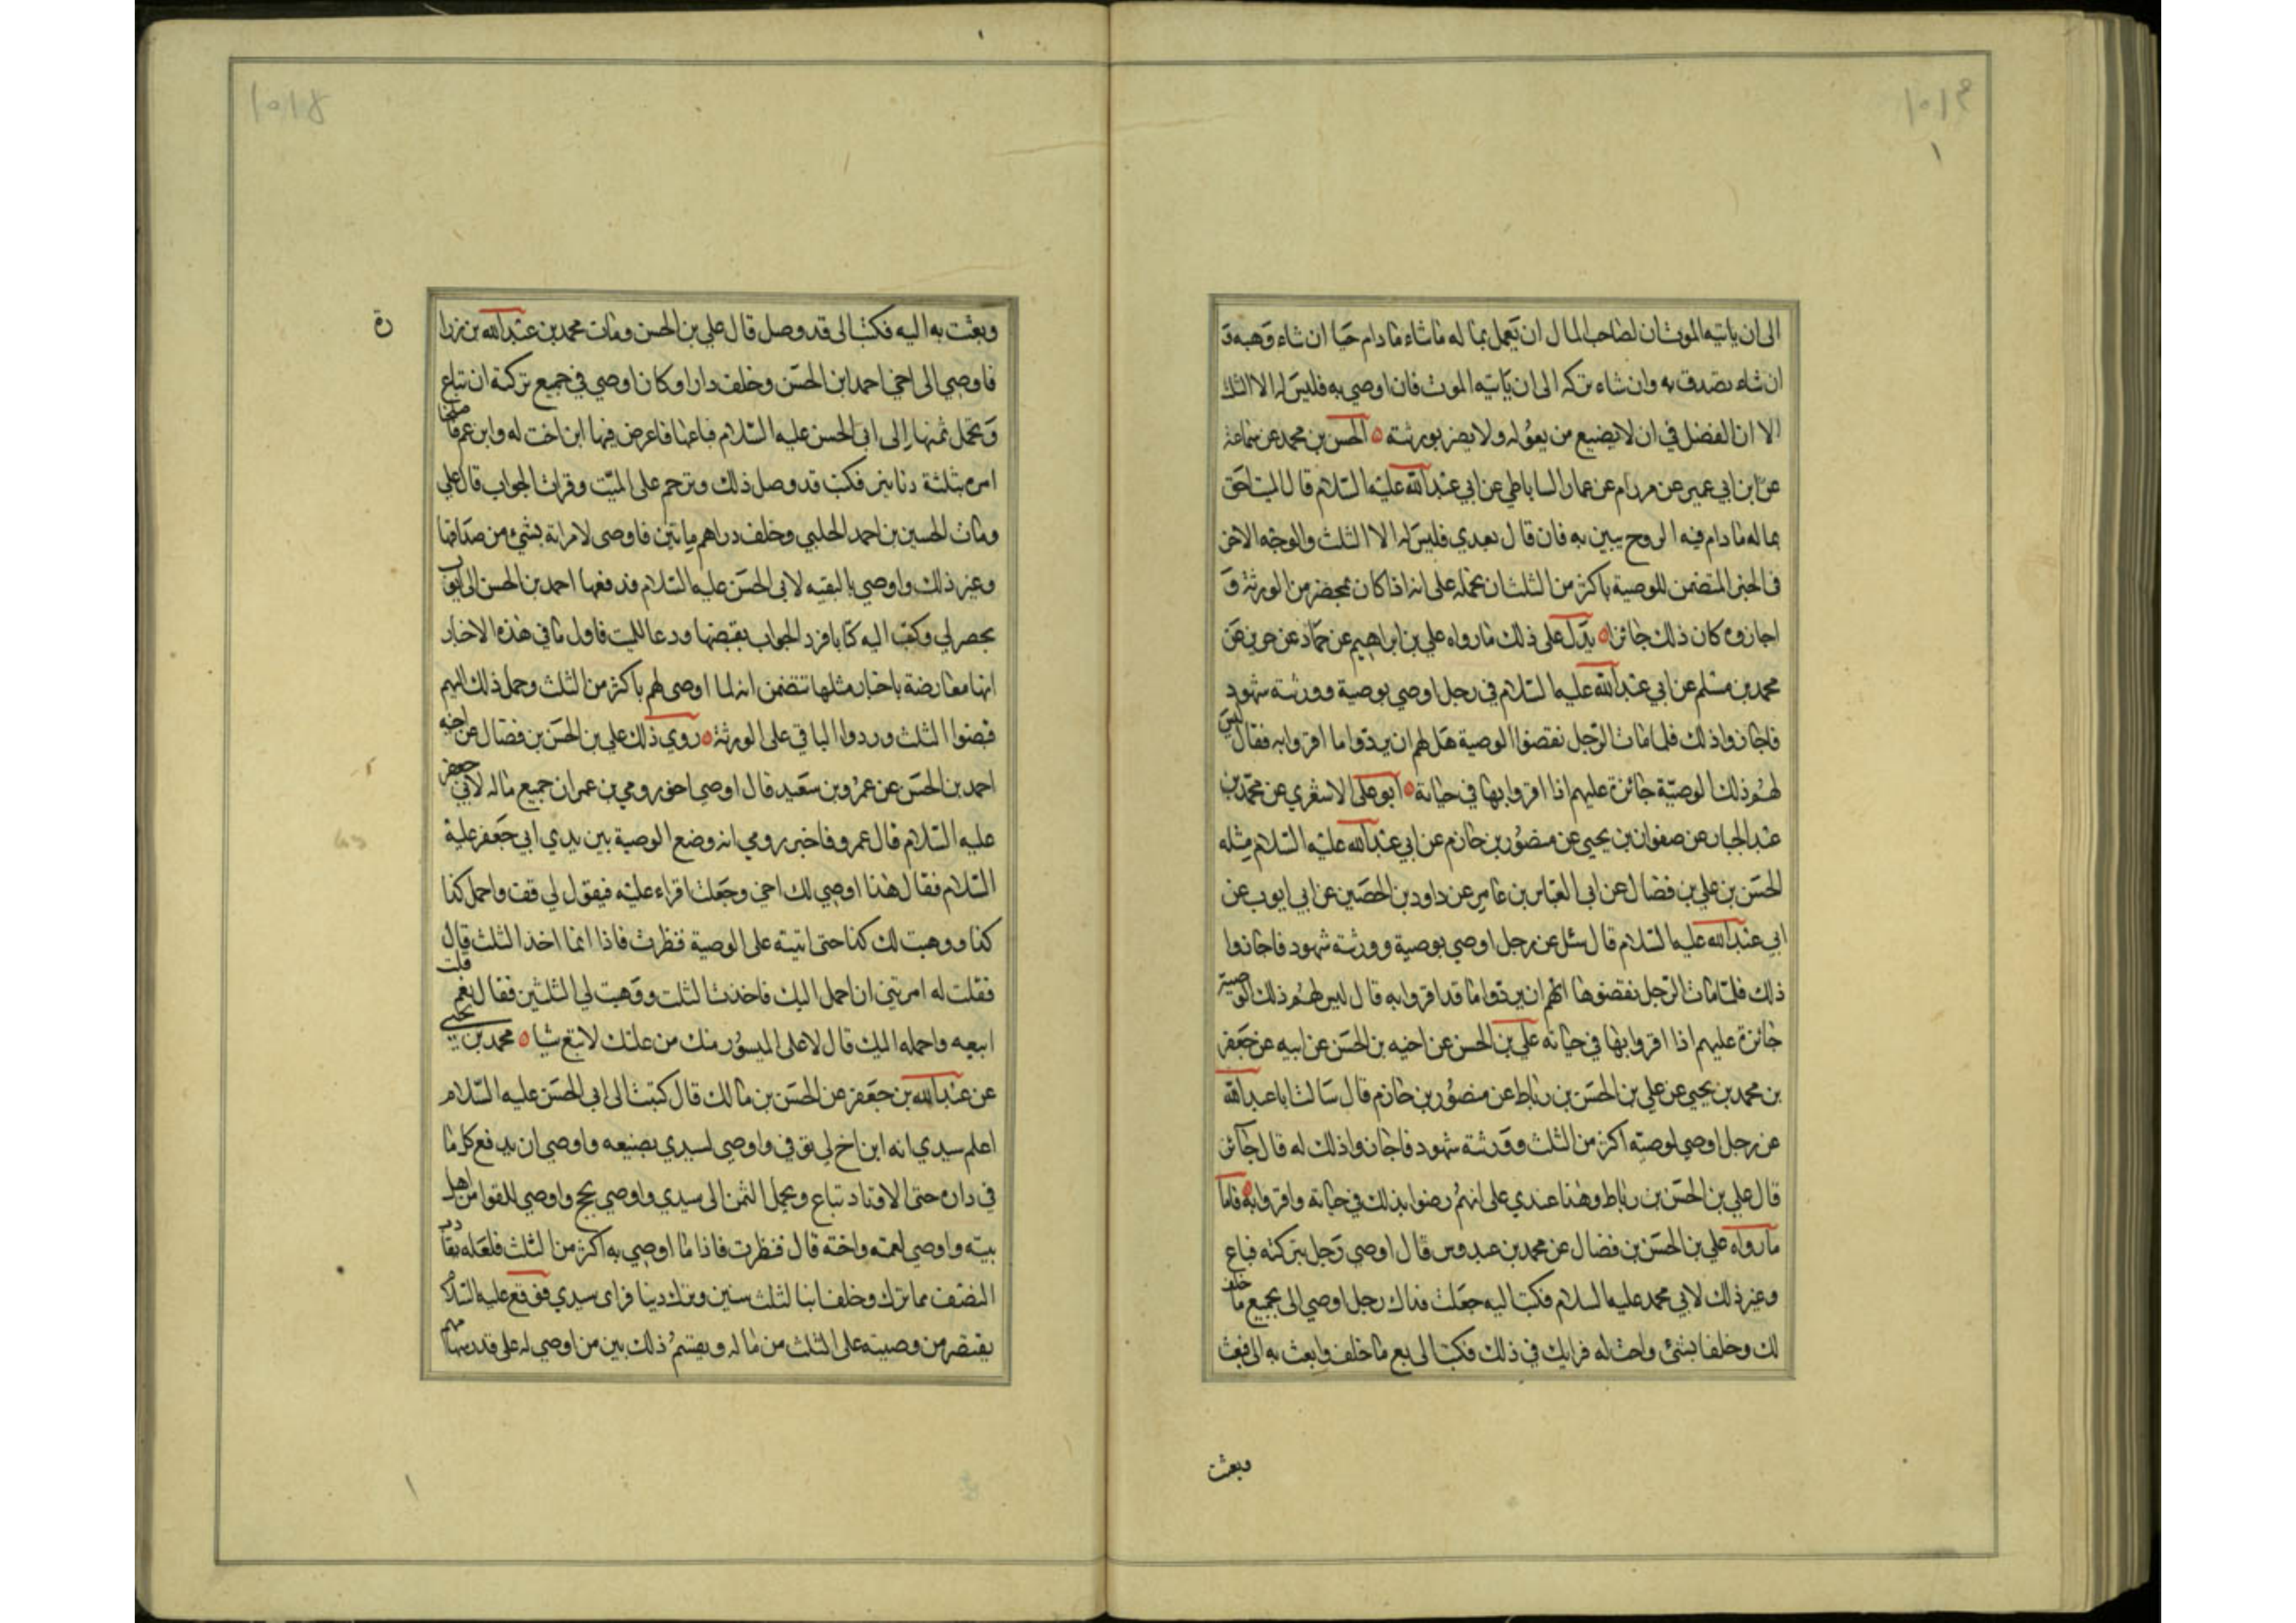 الى ان ياتيه الموت ان لصاحب المال ان يعمل بماله ماشاء مادام حيا ان شاء وهبه و
ان شاء تصدق به وان شاء تركه الى ان ياتيه الموت فان اوصى به فليس له الا الثلث
الا ان الفضل في ان لا يضيع من يعوله ولا يضر بورثته ٥ الحسن بن محمد عن سماعة
عن ابن ابي عمير عن مرازم عن عمار الساباطي عن ابي عبدالله عليه السلام قال الميت احق
بماله مادام فيه الروح يبين به فان قال بعدي فليس له الا الثلث والوجه الاخر
في الخبر المتضمن للوصية باكثر من الثلث ان نحمله على انه اذا كان بمحضر من الورثة و
اجازوه كان ذلك جائزا ٥ يدل على ذلك مارواه علي بن ابراهيم عن حماد عن حريز عن
محمد بن مسلم عن ابي عبدالله عليه السلام في رجل اوصي بوصية وورثته شهود
فاجازوا ذلك فلما مات الرجل نقضوا الوصية هل لهم ان يردوا ما اقروا به فقال ليس
لهم ذلك الوصيّة جائزة عليهم اذا اقروا بها في حياته ٥ ابوعلى الاشعري عن محمد بن
عبدالجبار عن صفوان بن يحيى عن منصور بن حازم عن ابي عبدالله عليه السلام مثله
الحسن بن علي بن فضال عن ابى العباس بن عامر عن داود بن الحصين عن ابي ايوب عن
ابي عبدالله عليه السلام قال سئل عن رجل اوصي بوصية وورثته شهود فاجازوا
ذلك فلمّا مات الرجل نقضوها الهم ان يردوا ما قد اقروا به قال ليس لهم ذلك الوصية
جائزة عليهم اذا اقروا بها في حياته علي بن الحسن عن اخيه بن الحسن عن ابيه عن جعفر
بن محمد بن يحيى عن علي بن الحسن بن رباط عن منصور بن حازم قال سالت اباعبدالله
عن رجل اوصي لوصيّه اكثر من الثلث وورثته شهود فاجازوا ذلك له قال جائز
قال علي بن الحسن بن رباط وهذا عندي على انهم رضوا بذلك في حياته واقروا به ٥ فاما
مارواه علي بن الحسن بن فضال عن محمد بن عبدوس قال اوصى رجل بتركته فباع
وغير ذلك لابي محمد عليه السلام فكتب اليه جعلت فداك رجل اوصي الى بجميع ما خلف
لك وخلف بشئ واخت له فرايك في ذلك فكتب الى بع ماخلف وابعث به الى فبعث
وبعثت
وبعثت به اليه فكتب الى قد وصل قال علي بن الحسن ومات محمد بن عبدالله بن زرا
رة
فاوصي الى اخي احمد ابن الحسن وخلف دارا وكان اوصي في جميع تركته ان تباع
ويحمل ثمنها الى ابى الحسن عليه السلام فباعها فاعرض فيها ابن اخت له وابن عم فاصلحنا
امره بثلثة دنانير فكتب قد وصل ذلك وترحم على الميّت وقرات الجواب قال علي
ومات الحسين بن احمد الحلبي وخلف دراهم مايتين فاوصى لامراته بشئ من صداقها
وغير ذلك واوصي بالبقيه لابى الحسن عليه السلام فدفعها احمد بن الحسن الى ايوب
بحضرتي وكتب اليه كتابا فرد الجواب بقبضها ودعا للميت فاول مافي هذه الاخبار
انها معارضة باخبار مثلها تتضمن انه لما اوصى لهم باكثر من الثلث وحمل ذلك اليهم
قبضوا الثلث وردوا الباقي على الورثة ٥ روي ذلك علي بن الحسن بن فضال عن اخيه
احمد بن الحسن عن عمرو بن سعيد قال اوصي اخو رومي بن عمران جميع ماله لابي جعفر
عليه السلام قال عمرو فاخبر رومي انه وضع الوصية بين يدي ابي جعفر عليه
السلام فقال هذا اوصي لك اخي وجعلت اقراء عليه فيقول لي قف واحمل كذا
كذا ووهبت لك كذا حتى اتيته على الوصية فنظرت فاذا انما اخذ الثلث قال
فقلت له امرتني ان احمل اليك فاخذت الثلث ووهبت لي الثلثين فقال نعم قلت
ابيعه واحمله اليك قال لا على الميسور منك من غلتك لا تبع شيا ٥ محمد بن يحيى
عن عبدالله بن جعفر عن الحسن بن مالك قال كتبت الى ابى الحسن عليه السلام
اعلم سيدي انه ابن اخ لي توفي واوصي لسيدي بضيعه واوصي ان يدفع كل ما
في داره حتى الاوتاد تباع ويحمل الثمن الى سيدي واوصي بحج واوصي للفقراء من اهل
بيته واوصي لعمته واخته قال فنظرت فاذا ما اوصي به اكثر من الثلث فلعله يقارب
النصف مما ترك وخلف ابنا لثلث سنين وترك دينا فراى سيدي فوقع عليه السلام
يقتصر من وصيته على الثلث من ماله ويقسم ذلك بين من اوصي له على قدر سهامهم